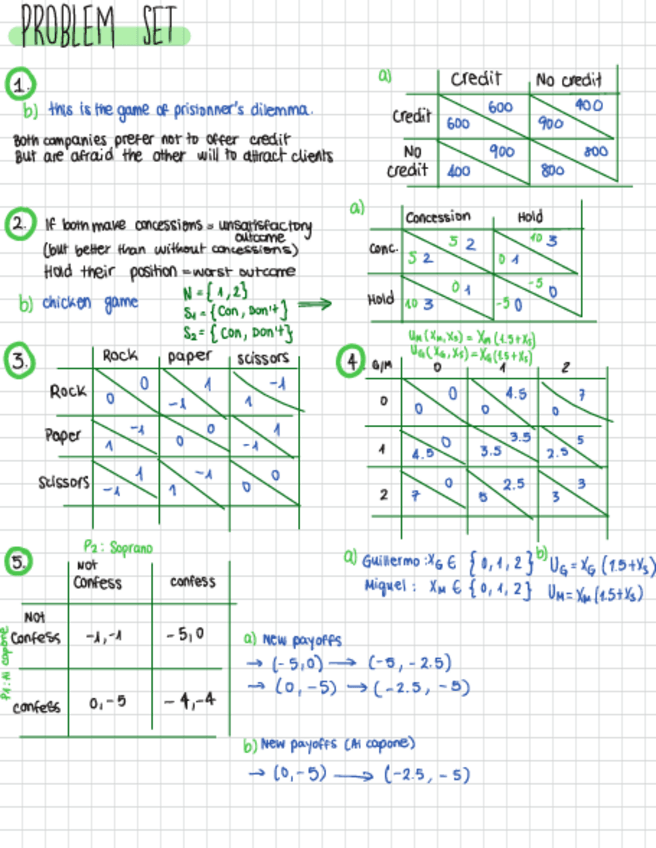 PROBLEM SET
1.
b) this is the game of prisionner's dilemma.
Both companies prefer not to offer credit
But are afraid the other will to attract clients
a)
Credit No credit
Credit 600 600 900 400
No credit 400 900 800 800
2. If both make concessions = unsatisfactory outcome
(but better than without concessions)
Hold their position = worst outcome
b) chicken game
N = {1,2}
S1 = {Con, Don't}
S2 = {Con, Don't}
a)
Concession Hold
Conc. 5 2 5 2 0 1 10 3
Hold 10 3 0 1 -5 0 -5 0
3. Rock paper scissors
Rock 0 0 -1 1 1 -1
Paper 1 -1 0 0 -1 1
Scissors -1 1 1 -1 0 0
UM (XM, XS) = XM (1.5+XS)
UG (XG, XS) = XG (1.5+XS)
4. G/M 0 1 2
0 0 0 0 4.5 0 7
1 4.5 0 3.5 3.5 2.5 5
2 7 0 5 2.5 3 3
a) Guillermo : XG ∈ {0,1,2}
Miquel : XM ∈ {0,1,2}
b) UG = XG (1.5+XS)
UM = XM (1.5+XS)
5. P2: Soprano
Not Confess confess
P1: Al capone
Not Confess -1,-1 -5,0
confess 0,-5 -4,-4
a) New payoffs
→ (-5,0) → (-5, -2.5)
→ (0, -5) → (-2.5, -5)
b) New payoffs (Al capone)
→ (0,-5) → (-2.5, -5)